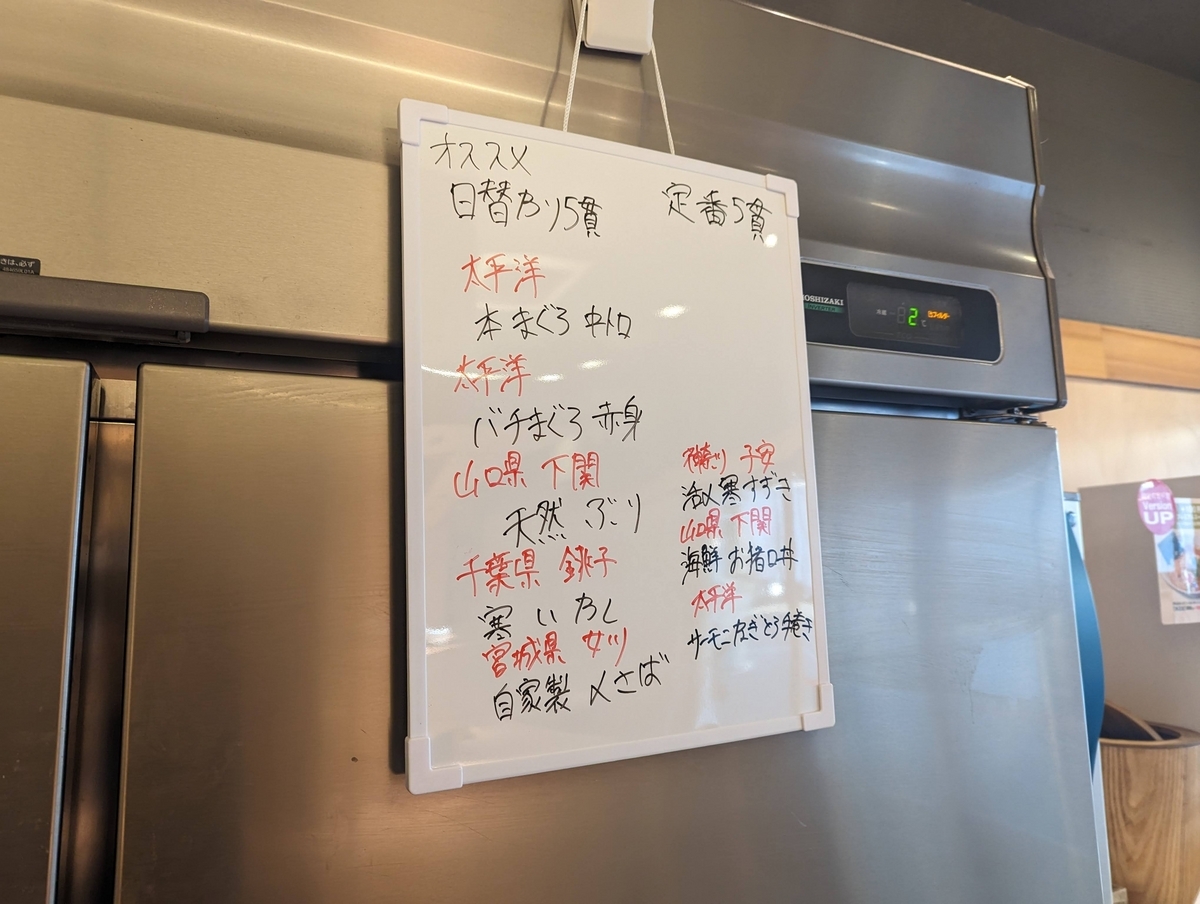 オススメ
日替カリ5貫
定番5貫
太平洋
本まぐろ 中トロ
太平洋
バチまぐろ 赤身
山口県 下関
天然 ぶり
千葉県 銚子
寒 いわし
宮城県 女川
自家製 〆さば
子安
活〆寒すずき
山口県 下関
海鮮 お猪口丼
太平洋
サーモンねぎとろ手巻き
HOSHIZAKI
2
Version
UP